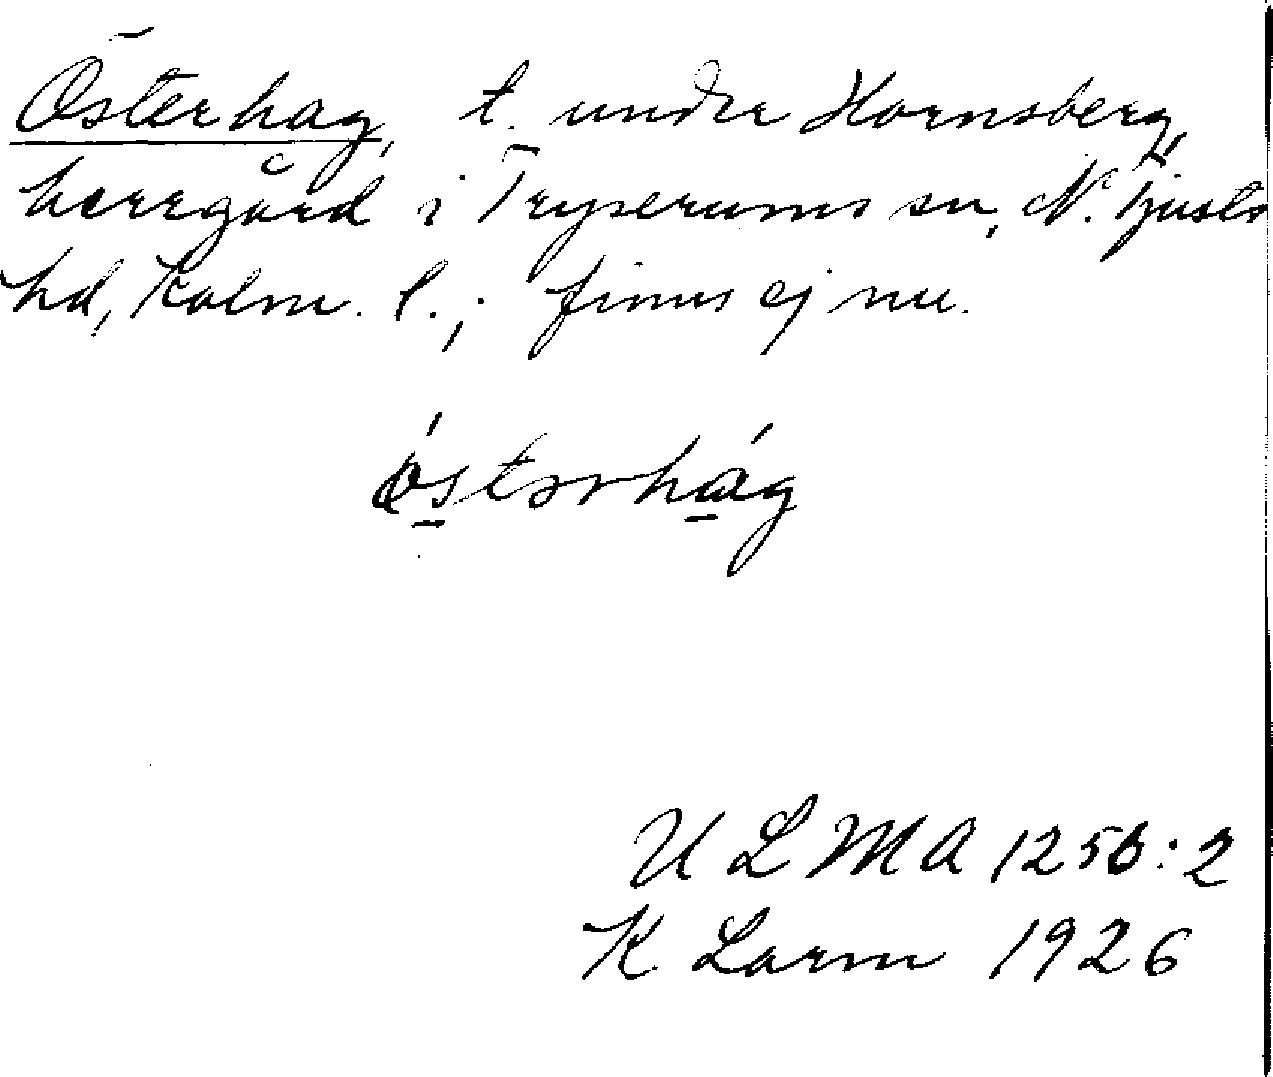 Österhag, t. under Hornsberg,
herrgård i Tryserums sn, N. Tjusts
hd, Kalm. l.; finns ej nu.
ULMA 1256:2
K Larm 1926